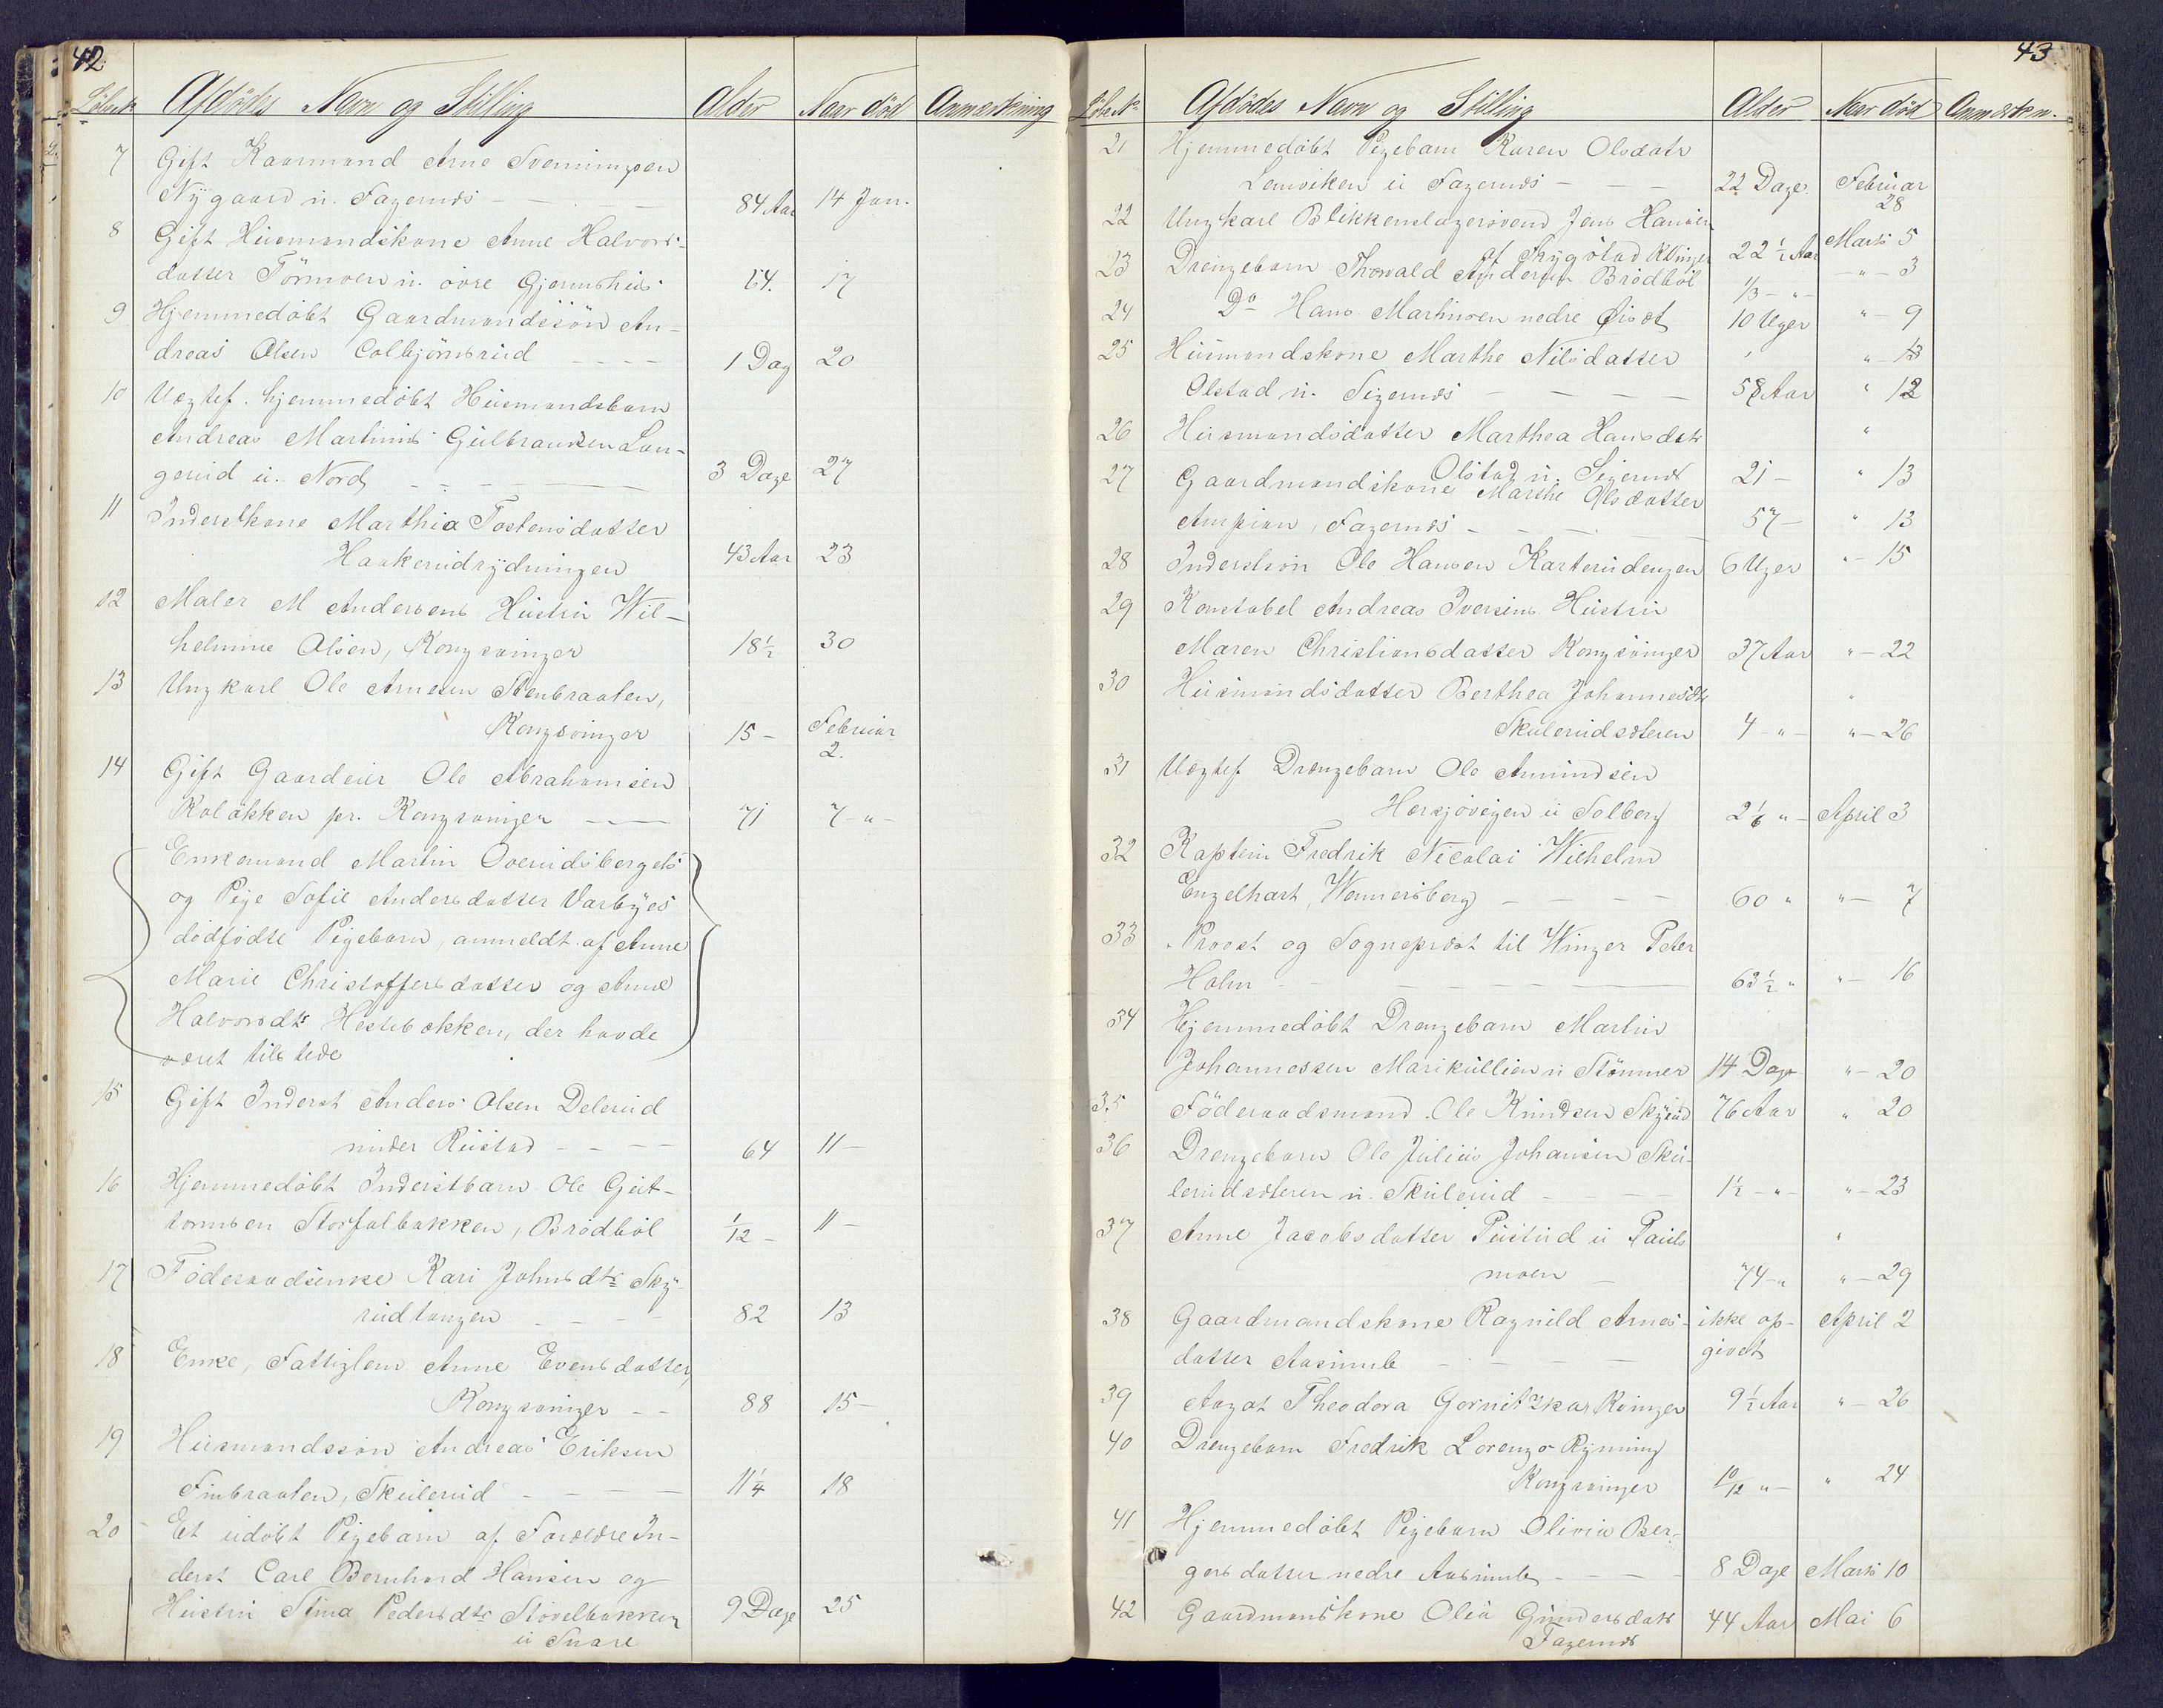 42
Löbenr. Afdödes Navn og Stilling Alder Naar död Anmerkning
7 Gift Kaarmand Arne Svenningsen
Nygaard u. Fagernæs 84 Aar 14 Jan.
8 Gift Huusmandskone Anne Halvors-
datter Törmoen u. övre Gjermshus 64. 17
9 Hjemmedöbt Gaardmandssön An-
dreas Olsen Colbjörnsrud 1 Dag 20
10 Uægtef. hjemmedöbt Huusmandsbarn
Andreas Martinus Gulbrandsen Lan-
gerud u. Nord 3 Dage 27
11 Inderstkone Marthia Tostensdatter
Haakerudrydningen 43 Aar 23
12 Maler M Andersens Hustru Wil-
helmine Olsen, Kongsvinger 18½ 30
13 Ungkarl Ole Arnesen Stenbraaten,
Kongsvinger 15 - Februar 2.
14 Gift Gaardeier Ole Abrahamsen
Kolökken pr. Kongsvinger 71 7 - " -
Enkemand Martin Overudsbergets
og Pige Sofie Andersdatter Varbyes
dödfödte Pigebarn, anmeldt af Anne
Marie Christoffersdatter og Anne
Halvorsdtr Hestebækken, der havde
været tilstede
15 Gift Inderst Anders Olsen Delerud
under Rustad 64 11 -
16 Hjemmedöbt Inderstbarn Ole Geit-
tornsen Storfalbakken, Brödböl 1/12 - 11 -
17 Föderaadsenke Kari Johnsdtr Sky-
rudtangen 82 13
18 Enke, Fattiglem Anne Evensdatter,
Kongsvinger 88 15 -
19 Huusmandssön Andreas Eriksen
Finbraaten, Skulerud 11¼ 18
20 Et udöbt Pigebarn af Forældre In-
derst Carl Bernhard Hansen og
Hustru Stina Pedersdtr Stövelbakken 9 Dage 25
u Snare
43
Löbe No Afdödes Navn og Stilling Alder Naar död Anmærkn.
21 Hjemmedöbt Pigebarn Karen Olsdatr
Lenviken u Fagernæs 22 Dage. Februar 28
22 Ungkarl Blikkenslagersvend Jens Hansen
af Skygstad KVinger 22½ Aar Marts 5
23 Drengebarn Thorvald Andersen Brödböl 1/3 - " - - " - 3
24 Do Hans Martinsen nedre Öiset 10 Uger " - 9
25 Huusmandskone Marthe Nilsdatter " - 13
Olstad u. Sigernæs 58 Aar " 12
26 Huusmandsdatter Marthea Hansdtr
Olstad u. Sigernæs 21 - " 13
27 Gaardmandskone Marthe Olsdatter
Ampian, Fagernæs 57 - " 13
28 Inderstsön Ole Hansen Karterudengen 6 Uger " - 15
29 Konstabel Andreas Iversens Hustru
Maren Christiansdatter Kongsvinger 37 Aar " - 22
30 Huusmandsdatter Berthea Johannesdtr
Skulerudsæteren 4 - " - " - 26
31 Uægtef. Drengebarn Ole Amundsen
Hersjövegen u Solberg 2 1/6 " - April 3
32 Kaptein Fredrik Nicolai Wilhelm
Engelhart, Wennersberg 60 " " - 7
33 Provst og Sogneprest til Winger Peter
Holm 63½ " " - 16
34 Hjemmedöbt Drengebarn Martin
Johannessen Marikullien u Stömner 14 Dage " - 20
35 Föderaadsmand Ole Knudsen Skyrud 76 Aar " 20
36 Drengebarn Ole Julius Johansen Sku-
lerudsæteren u. Skulerud 1½ - " - " - 23
37 Anne Jacobsdatter Pustud u Pauls
moen 74 - " " - 29
38 Gaardmandskone Ragnild Arnes- ikke op- April 2
datter Aasnnæs givet
39 Aagot Theodora Gornitzka, Kvinger 9½ Aar " - 26
40 Drengebarn Fredrik Lorenzo Rynning
Kongsvinger 10/12 " - " 24
41 Hjemmedöbt Pigebarn Olivia Ber-
gersdatter nedre Aasnnæs 8 Dage Marts 10
42 Gaardmandskone Olea Gundersdatr 44 Aar Mai 6
Fagernæs